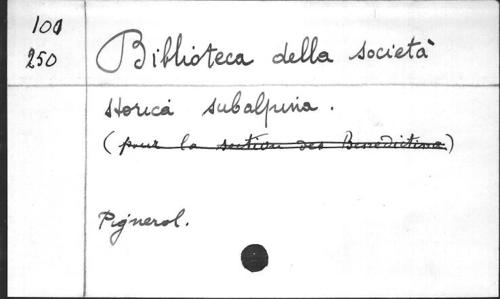 100
250
Biblioteca della società
storica subalpina.
(pour la section des Benedictins)
Pignerol.